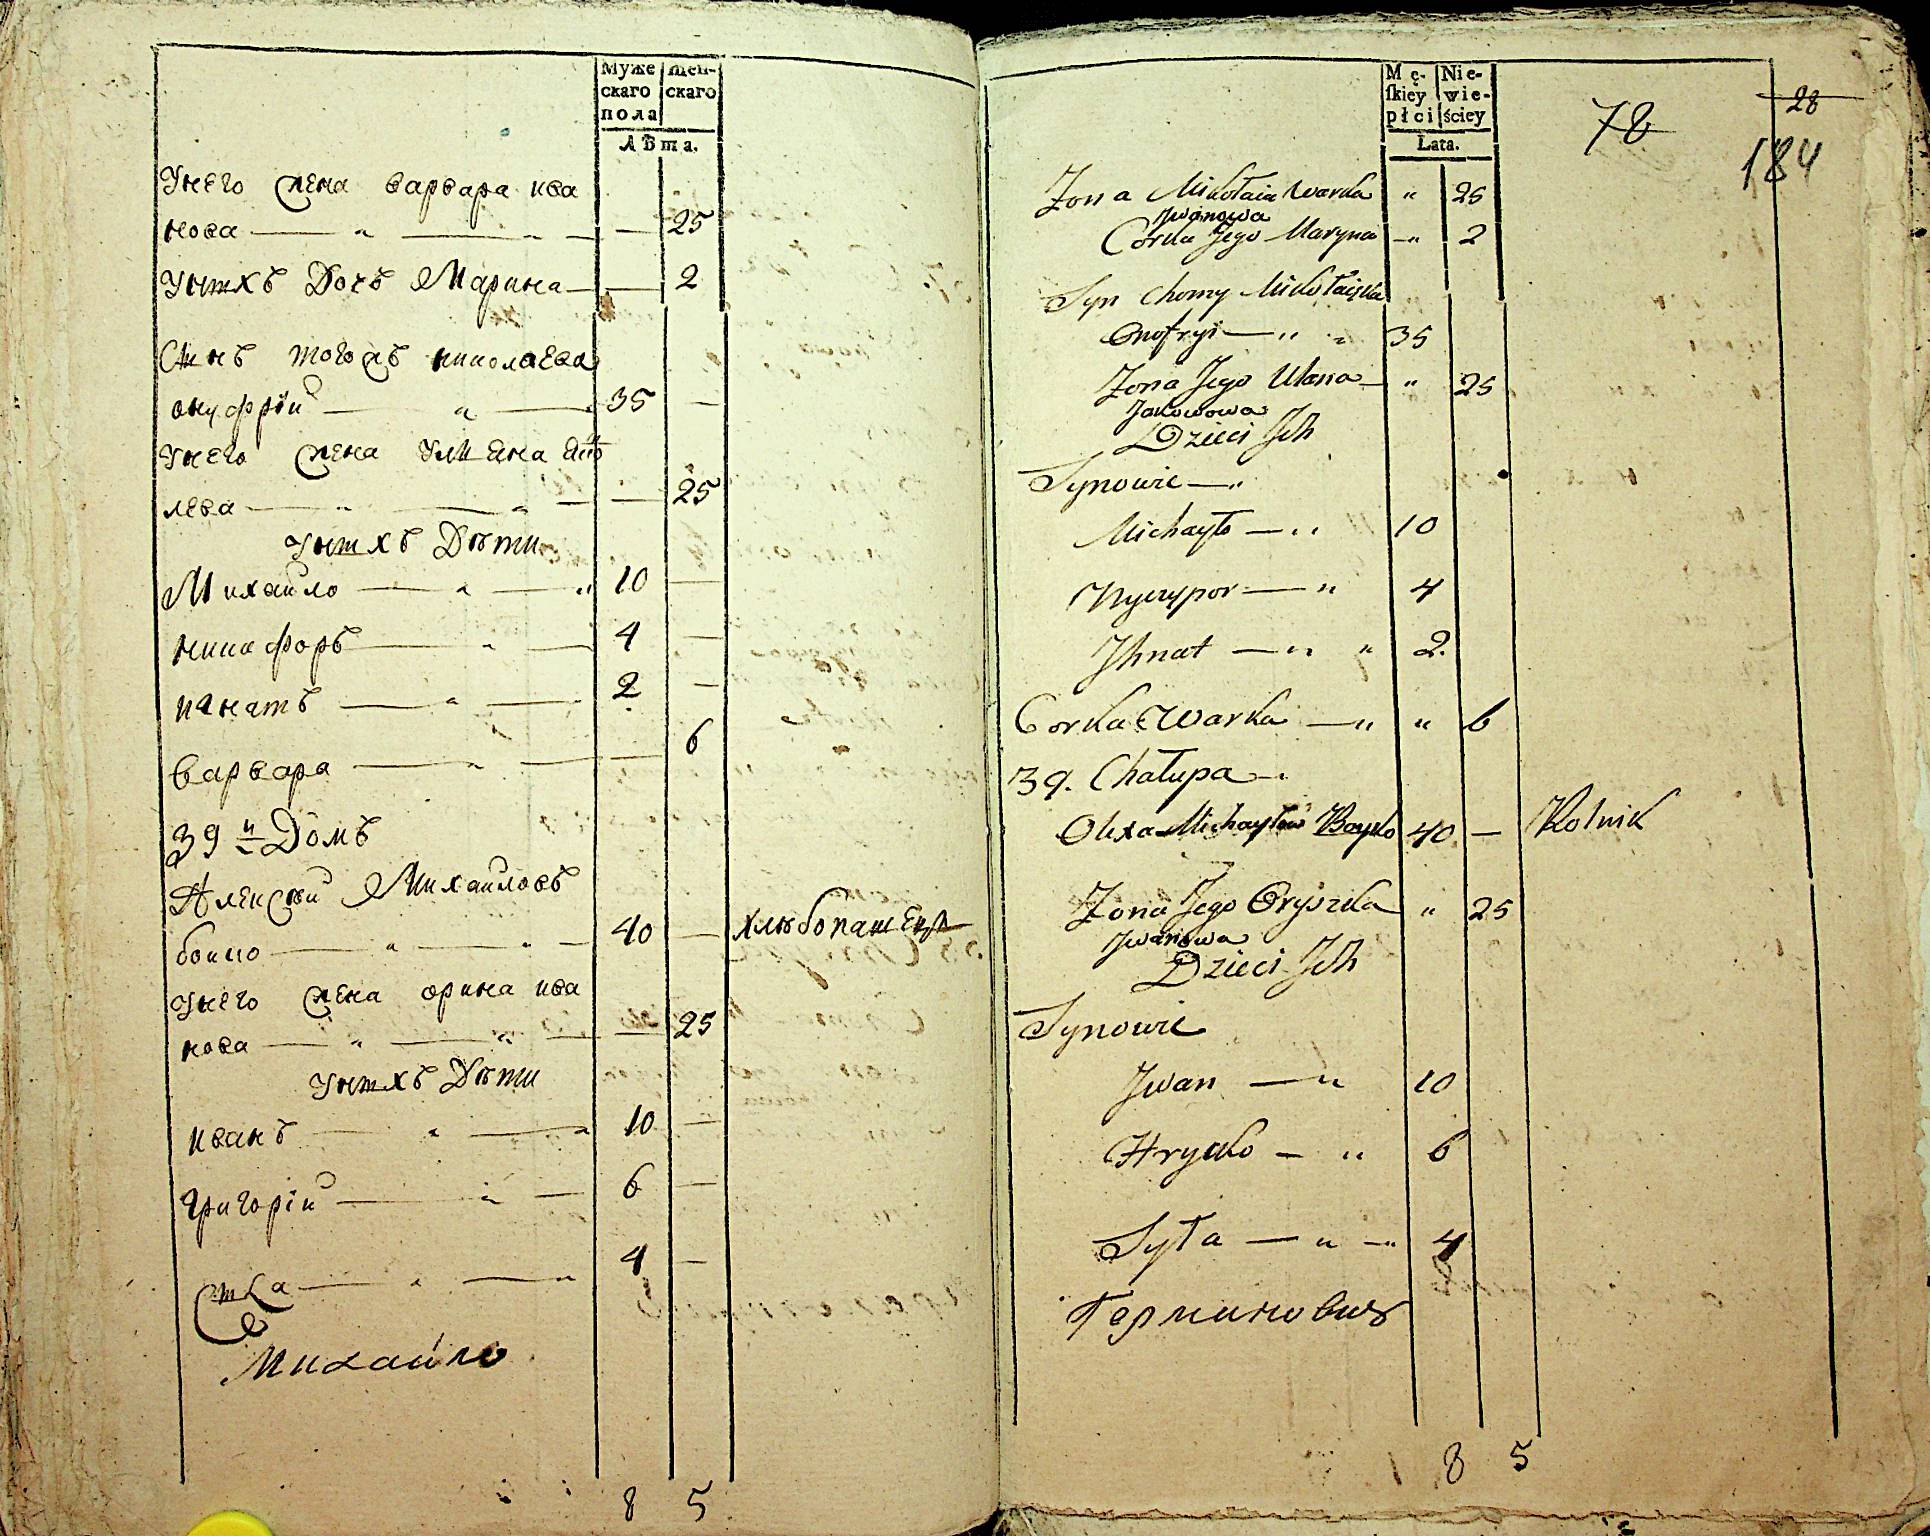 Муже
скаго
пола
жен-
скаго
лѣта.
Унего жена варвара ива
нова — „ — „ — — 25
Унихъ Дочь Марина — — 2
Сынъ тогожъ николаева
онуфрій — „ — 35 —
Унего жена Улияна
лева — „ — „ — — 25
Унихъ Дѣти
Михайло — „ — „ 10 —
никифоръ — „ — 4 —
игнатъ — „ — 2 —
варвара — „ — — 6
39 й Домъ
Алексѣй Михайловъ
бойко — „ — „ — 40 — хлѣбопашецъ
Унего жена орина ива
нова — „ — „ — — 25
Унихъ Дѣти
иванъ — „ — „ 10 —
григорій — „ — 6 —
— „ — „ 4 —
Михайло
8 5
Mę-
ſkiey
płci
Nie-
wie-
ściey
Lata.
78
28
184
Zona Mikołaia Warka „ 25
Jwanowa
Corka Jego Maryna — „ 2
Syn Chomy Mikołaiska
Onofryi — „ „ 35
Zona Jego Ulana — „ 25
Jakowowa
Dzieci Jch
Synowie — „
Michayło — „ 10
Nyczypor — „ 4
Jhnat — „ „ 2.
Corka Warka — „ „ 6
39. Chałupa — „
Olexa Michayłow Boyko 40 — Rolnik
Zona Jego Oryszka „ 25
Jwanowa
Dzieci Jch
Synowie
Jwan — „ 10
Hrycko — „ 6
Syła — „ — „ 4
Германовичъ
8 5